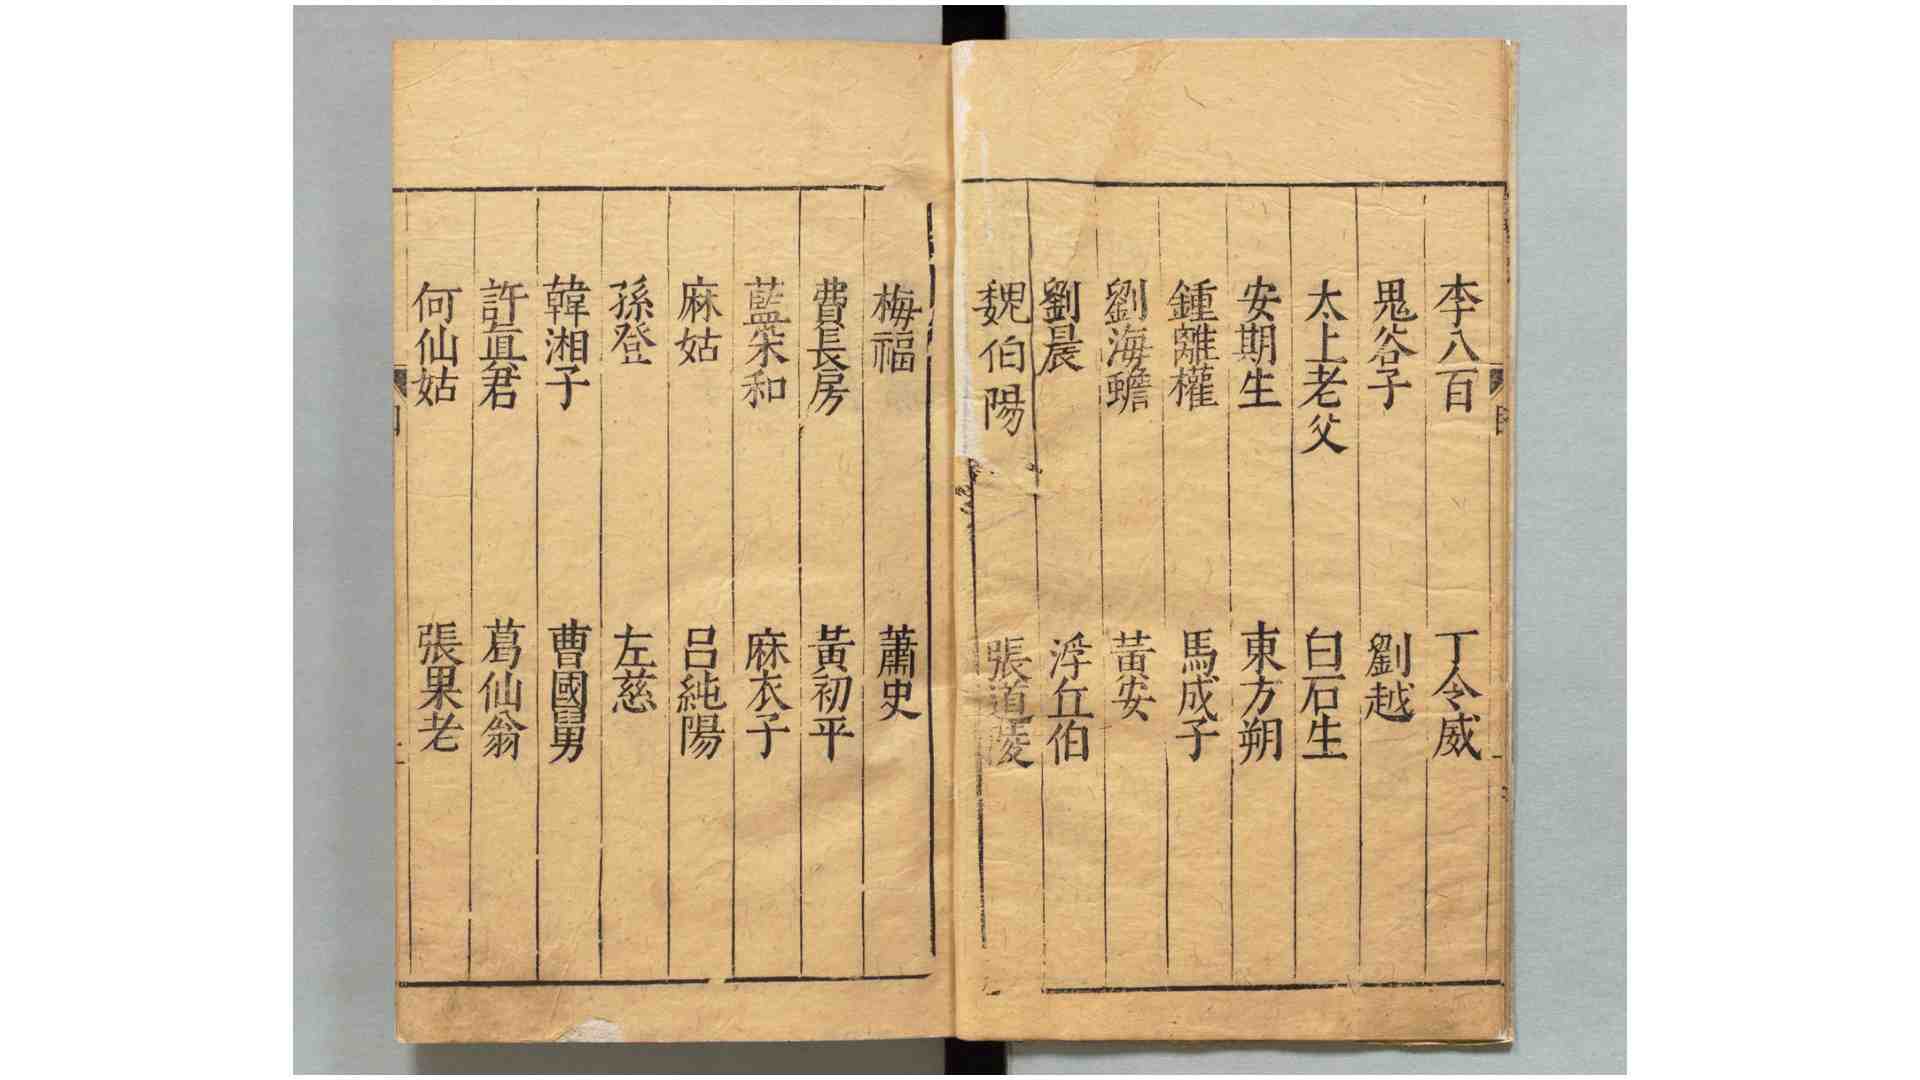 李八百 丁令威
鬼谷子 劉越
太上老父 白石生
安期生 東方朔
鍾離權 馬成子
劉海蟾 黃安
劉晨 浮丘伯
魏伯陽 張道陵
梅福 蕭史
費長房 黃初平
藍采和 麻衣子
麻姑 呂純陽
孫登 左慈
韓湘子 曹國舅
許真君 葛仙翁
何仙姑 張果老